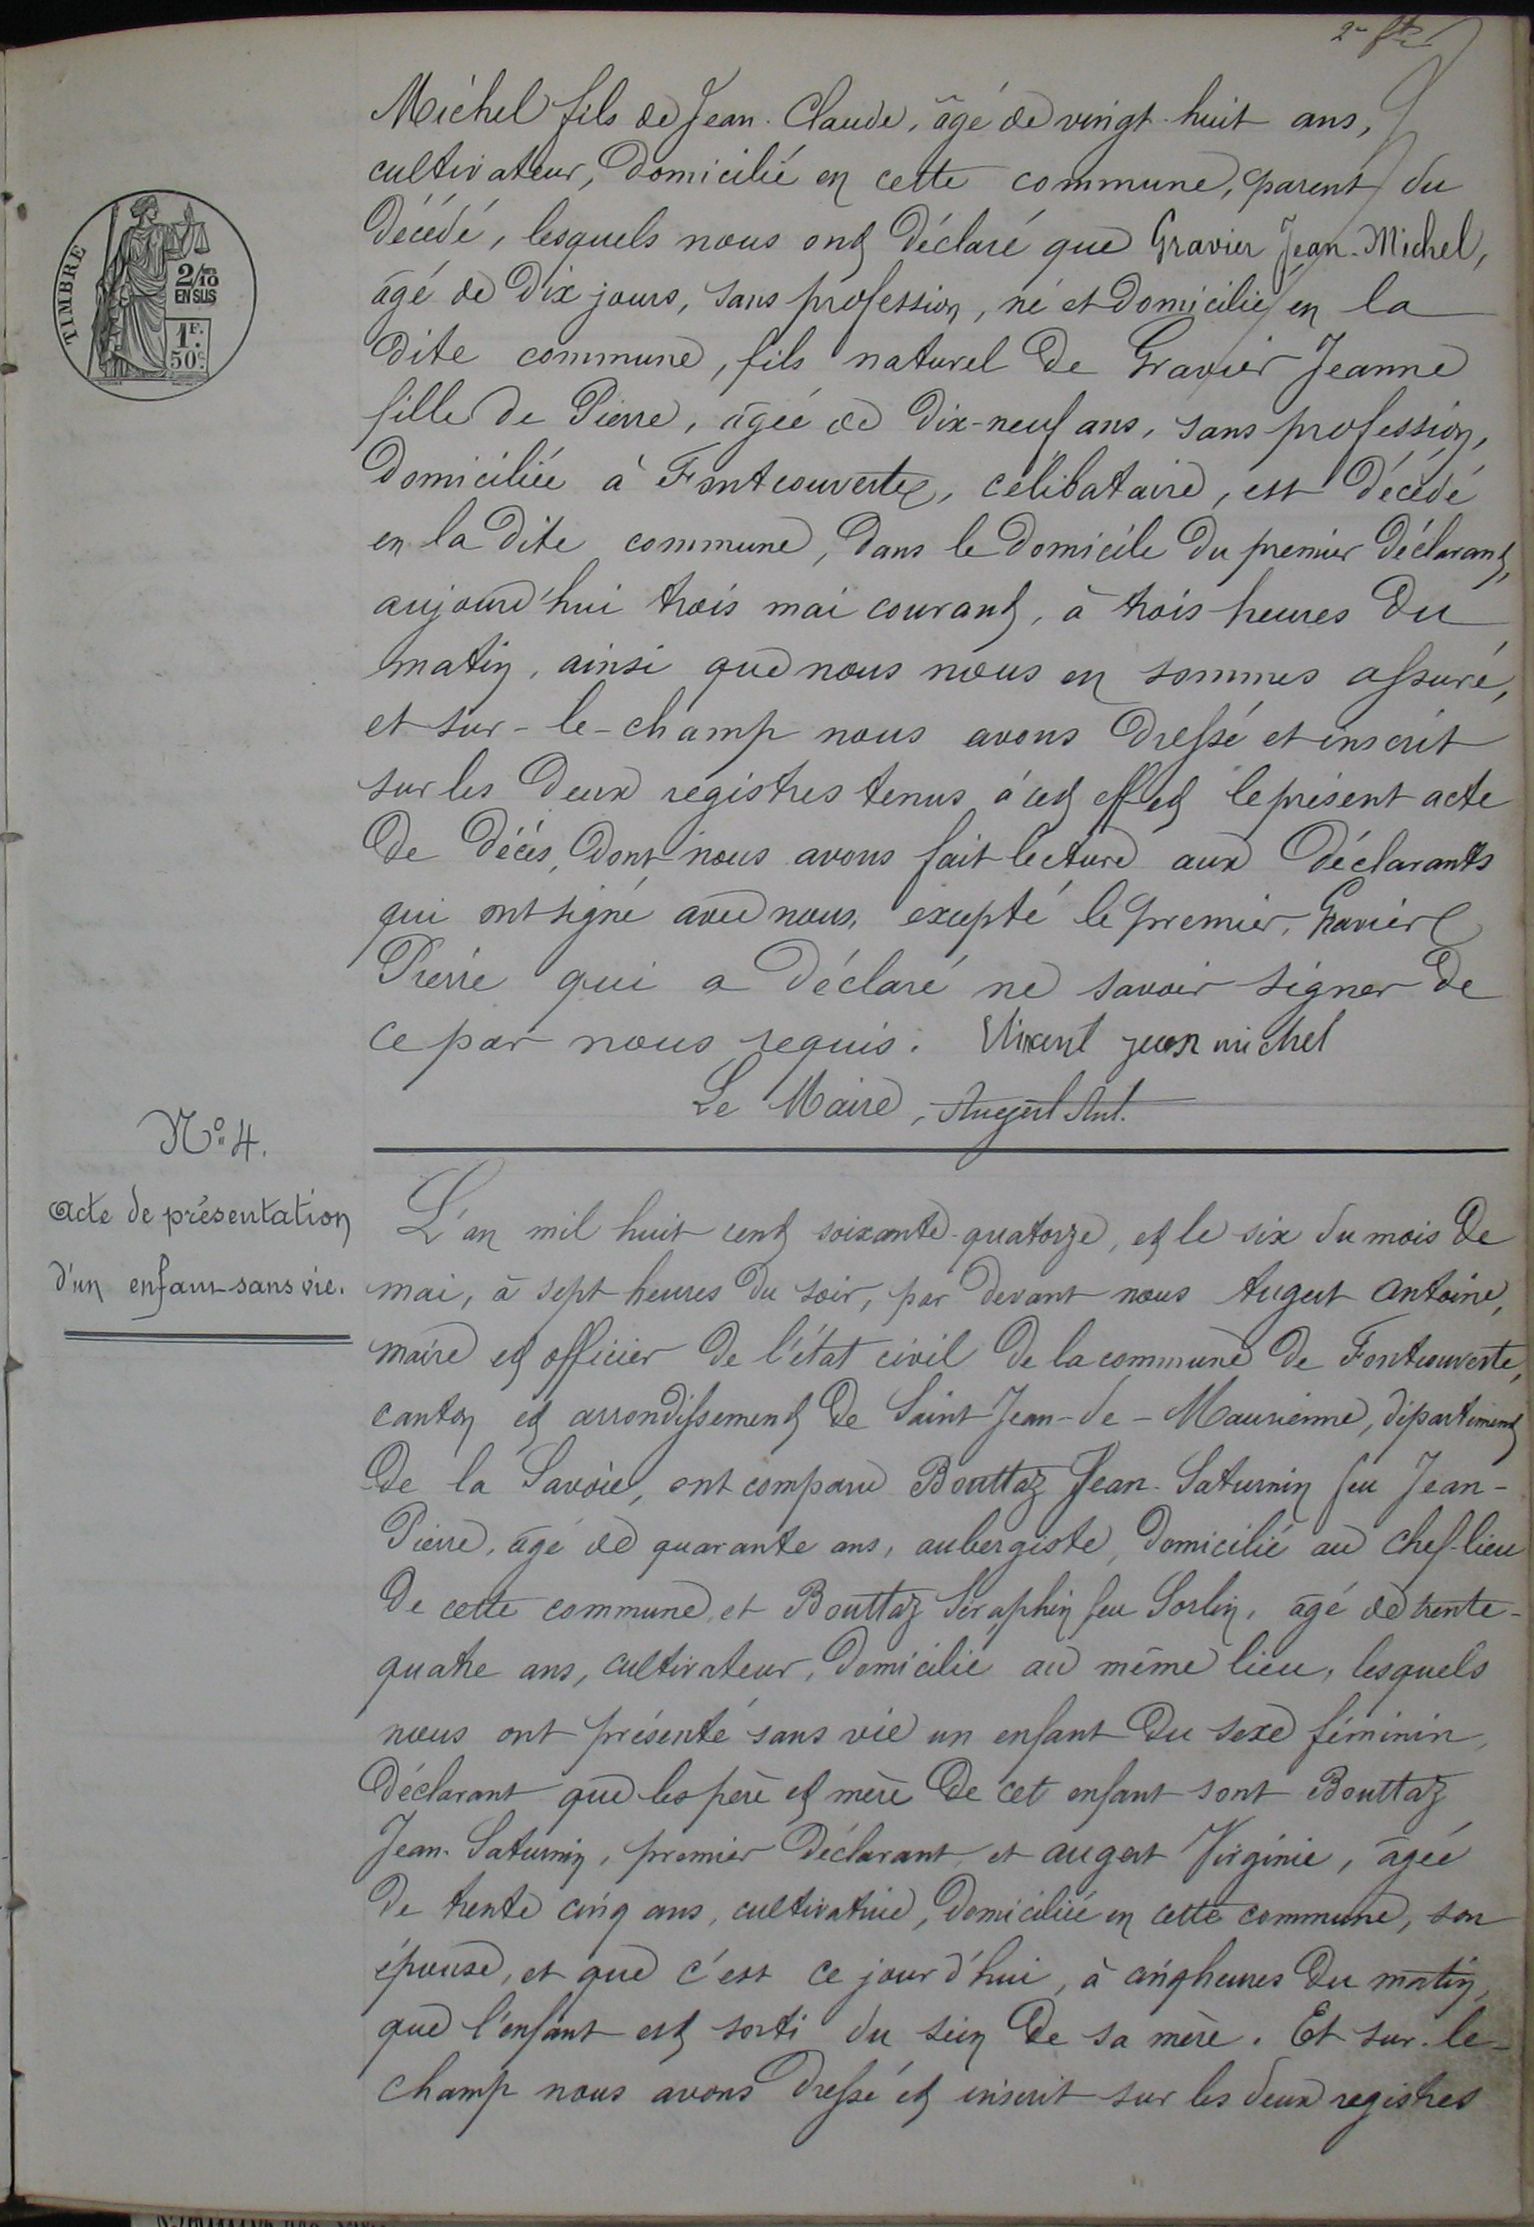 Michel fils de Jean-Claude, âgé de vingt-huit ans,
cultivateur, domicilié en cette commune, parent du
décédé, lesquels nous ont déclaré que Gravier Jean-Michel,
âgé de dix jours, sans profession, né et domicilié en la
dite commune, fils naturel de Gravier Jeanne
fille de Pierre, âgée de dix-neuf ans, sans profession,
domiciliée à Fontcouverte, célibataire, est décédé
en la dite commune, dans le domicile du premier déclarant,
aujourd'hui trois mai courant, à trois heures du
matin, ainsi que nous nous en sommes assuré,
et sur-le-champ nous avons dressé et inscrit
sur les deux registres tenus à cet effet le présent acte
de décès, dont nous avons fait lecture aux déclarants
qui ont signé avec nous, excepté le premier, Gravier
Pierre qui a déclaré ne savoir signer de
ce par nous requis. Vincent jean michel
Le Maire, Augert Ant.
TIMBRE
2/10 EN SUS
1F. 50c.
N° 4.
Acte de présentation
d'un enfant sans vie.
L'an mil huit cent soixante-quatorze, et le six du mois de
mai, à sept heures du soir, par devant nous Augert Antoine,
maire et officier de l'état civil de la commune de Fontcouverte,
canton et arrondissement de Saint-Jean-de-Maurienne, département
de la Savoie, ont comparu Bouttaz Jean-Saturnin feu Jean-
Pierre, âgé de quarante ans, aubergiste, domicilié au chef-lieu
de cette commune, et Bouttaz Séraphin feu Sorlin, âgé de trente-
quatre ans, cultivateur, domicilié au même lieu, lesquels
nous ont présenté sans vie un enfant du sexe féminin,
déclarant que les père et mère de cet enfant sont Bouttaz
Jean-Saturnin, premier déclarant, et Augert Virginie, âgée
de trente cinq ans, cultivatrice, domiciliée en cette commune, son
épouse, et que c'est ce jour d'hui, à cinq heures du matin,
que l'enfant est sorti du sein de sa mère. Et sur-le-
champ nous avons dressé et inscrit sur les deux registres